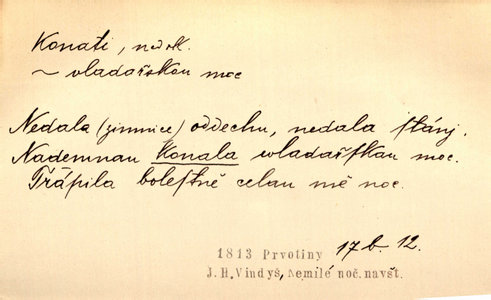 Konati, nedok.
~ vladařskou moc
Nedala (zimnice) oddechu, nedala stánj.
Nademnau Konala wladařskau moc.
Trápila bolestně celau mě noc.
1813 Prvotiny 17b. 12.
J.H.Vindyš, Nemilé noč.navšt.